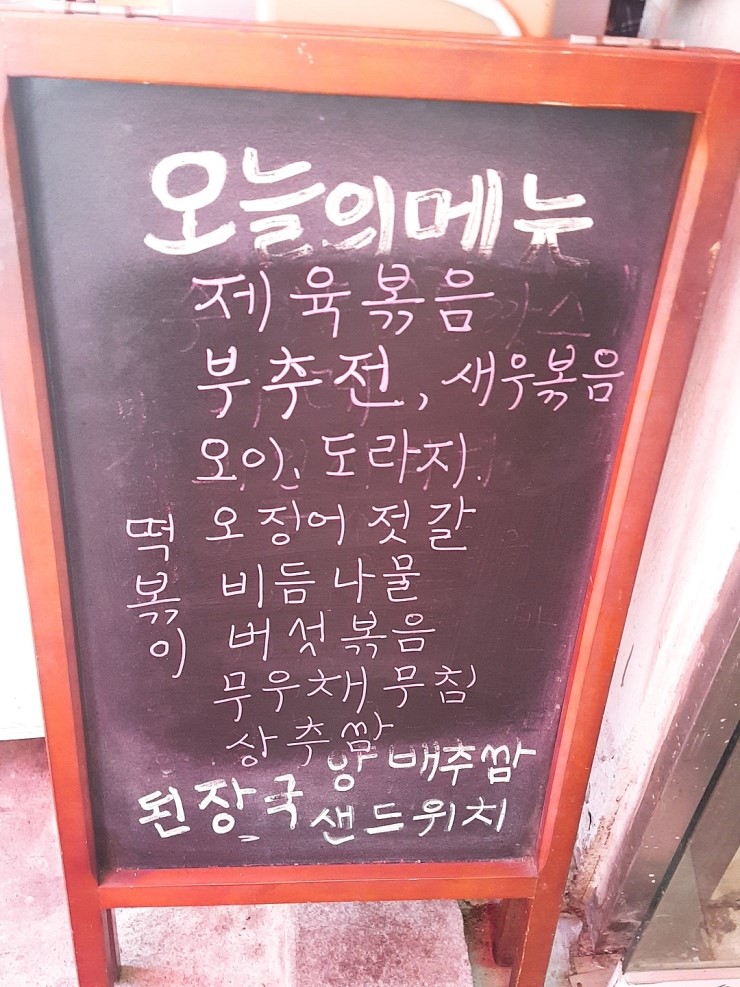 오늘의메뉴
제육볶음
부추전, 새우볶음
오이, 도라지.
오징어 젓갈
떡볶이
비듬나물
버섯볶음
무우채무침
상추쌈
양배추쌈
된장국
샌드위치